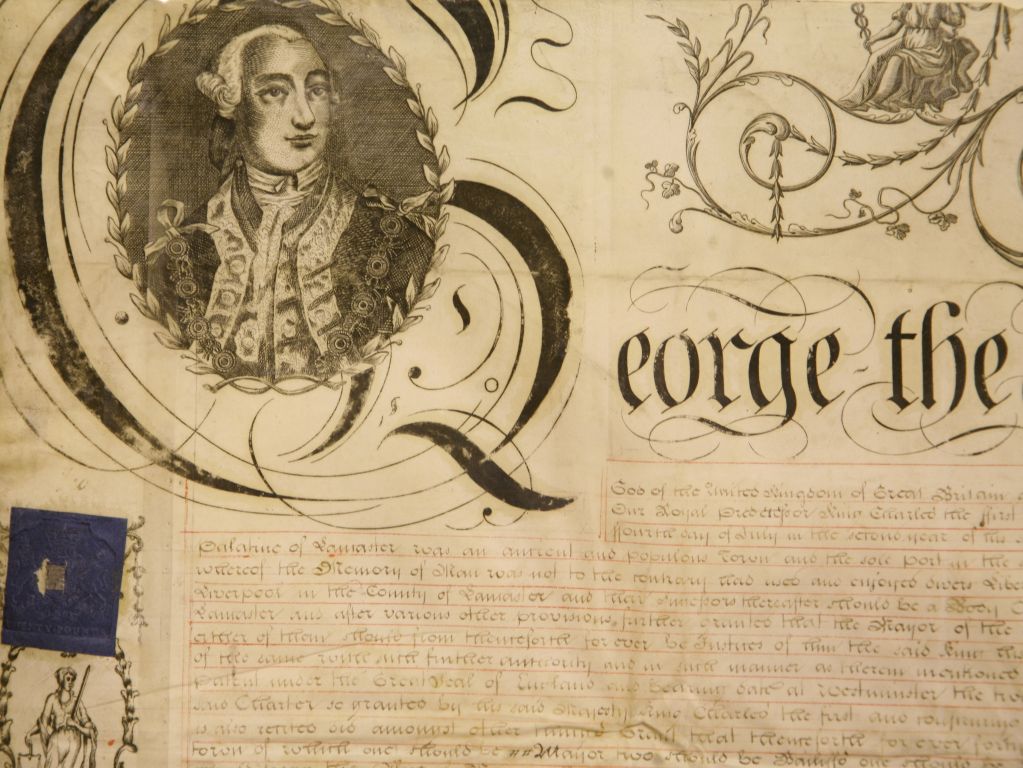 George the
God of the United Kingdom of Great Britain
Our Royal Predecessor King Charles the first
fourth day of July in the second year of his
Palatine of Lancaster was an antient and populous Town and the sole port in the
whereof the Memory of Man was not to the contrary had used and enjoyed divers
Liverpool in the County of Lancaster and their Successors thereafter should be a Body
Lancaster and after various other provisions further granted that the Mayor of the
either of them should from thenceforth for ever be Justices of him the said King
of the same Town with further authority and in such manner as therein mentioned
Patent under the Great Seal of England and bearing date at Westminster the
said Charter so granted by his said Majesty King Charles the first and
is also recited did amongst other things Grant that thenceforth for ever
town of which one should be Mayor two should be Bailiffs one should be